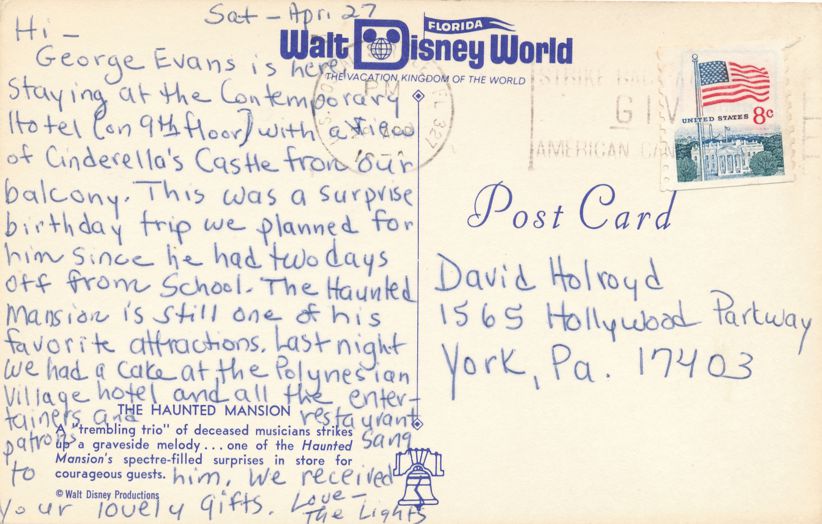 Sat - Apri 27
Hi -
George Evans is here
Staying at the Contemporary
Hotel (on 9th floor) with a view
of Cinderella's Castle from our
balcony. This was a surprise
birthday trip we planned for
him since he had two days
off from School. The Haunted
Mansion is still one of his
favorite attractions. Last night
we had a cake at the Polynesian
Village hotel and all the enter-
tainers and restaurant
patrons sang
to him. We received
your lovely gifts. Love -
The Lights
THE HAUNTED MANSION
A "trembling trio" of deceased musicians strikes
up a graveside melody . . . one of the Haunted
Mansion's spectre-filled surprises in store for
courageous guests.
© Walt Disney Productions
FLORIDA
Walt Disney World
THE VACATION KINGDOM OF THE WORLD
PM
FL 327
GIV
AMERICAN CAN
UNITED STATES 8c
Post Card
David Holroyd
1565 Hollywood Partway
York, Pa. 17403